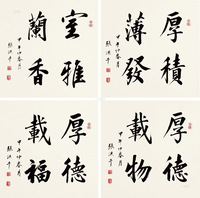 室雅
蘭香
甲午仲春月
張洪
厚積
薄發
甲午仲春月
張洪
厚德
載福
甲午仲春月
張洪
厚德
載物
甲午仲春月
張洪